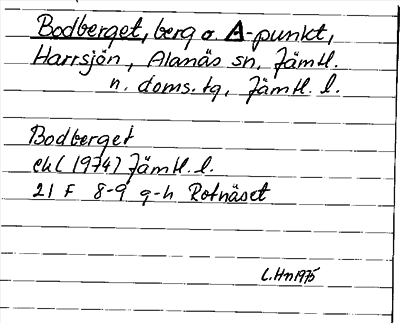 Bodberget, berg o. A-punkt,
Harrsjön, Alanäs sn, Jämtl.
n. doms. tg, Jämtl. l.
Bodberget
ek (1974) Jämtl. l.
21 F 8-9 g-h Rotnäset
L. Hn 1975